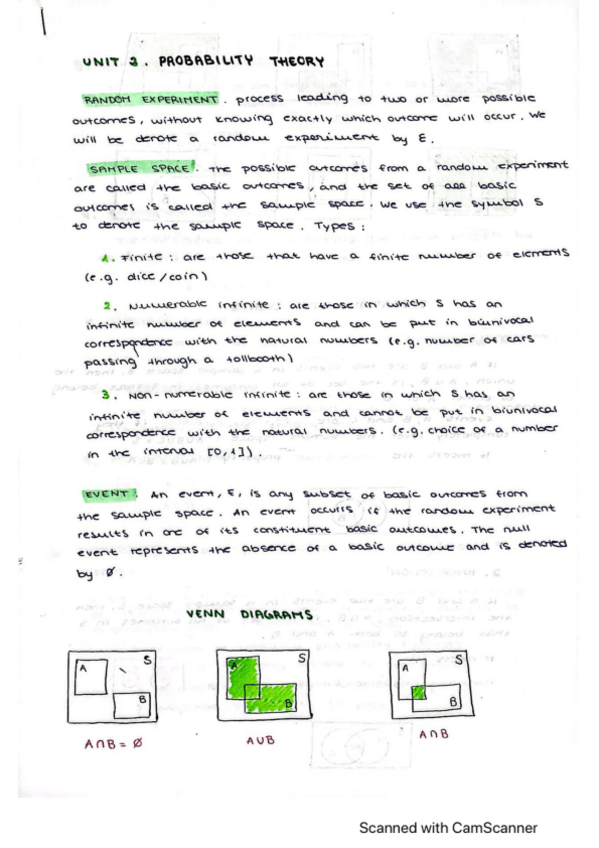 UNIT 2. PROBABILITY THEORY
RANDOM EXPERIMENT. process leading to two or more possible
outcomes, without knowing exactly which outcome will occur. We
will be denote a random experiment by E.
SAMPLE SPACE: the possible outcomes from a random experiment
are called the basic outcomes, and the set of all basic
outcomes is called the sample space. We use the symbol S
to denote the sample space. Types:
1. Finite: are those that have a finite number of elements
(e.g. dice/coin)
2. Numerable infinite: are those in which S has an
infinite number of elements and can be put in biunivocal
correspondence with the natural numbers (e.g. number of cars
passing through a tollbooth)
3. Non-numerable infinite: are those in which S has an
infinite number of elements and cannot be put in biunivocal
correspondence with the natural numbers. (e.g. choice of a number
in the interval [0,1]).
EVENT: An event, E, is any subset of basic outcomes from
the sample space. An event occurs if the random experiment
results in one of its constituent basic outcomes. The null
event represents the absence of a basic outcome and is denoted
by Ø.
VENN DIAGRAMS
A S B
A S B
A S B
A∩B = Ø
A∪B
A∩B
Scanned with CamScanner